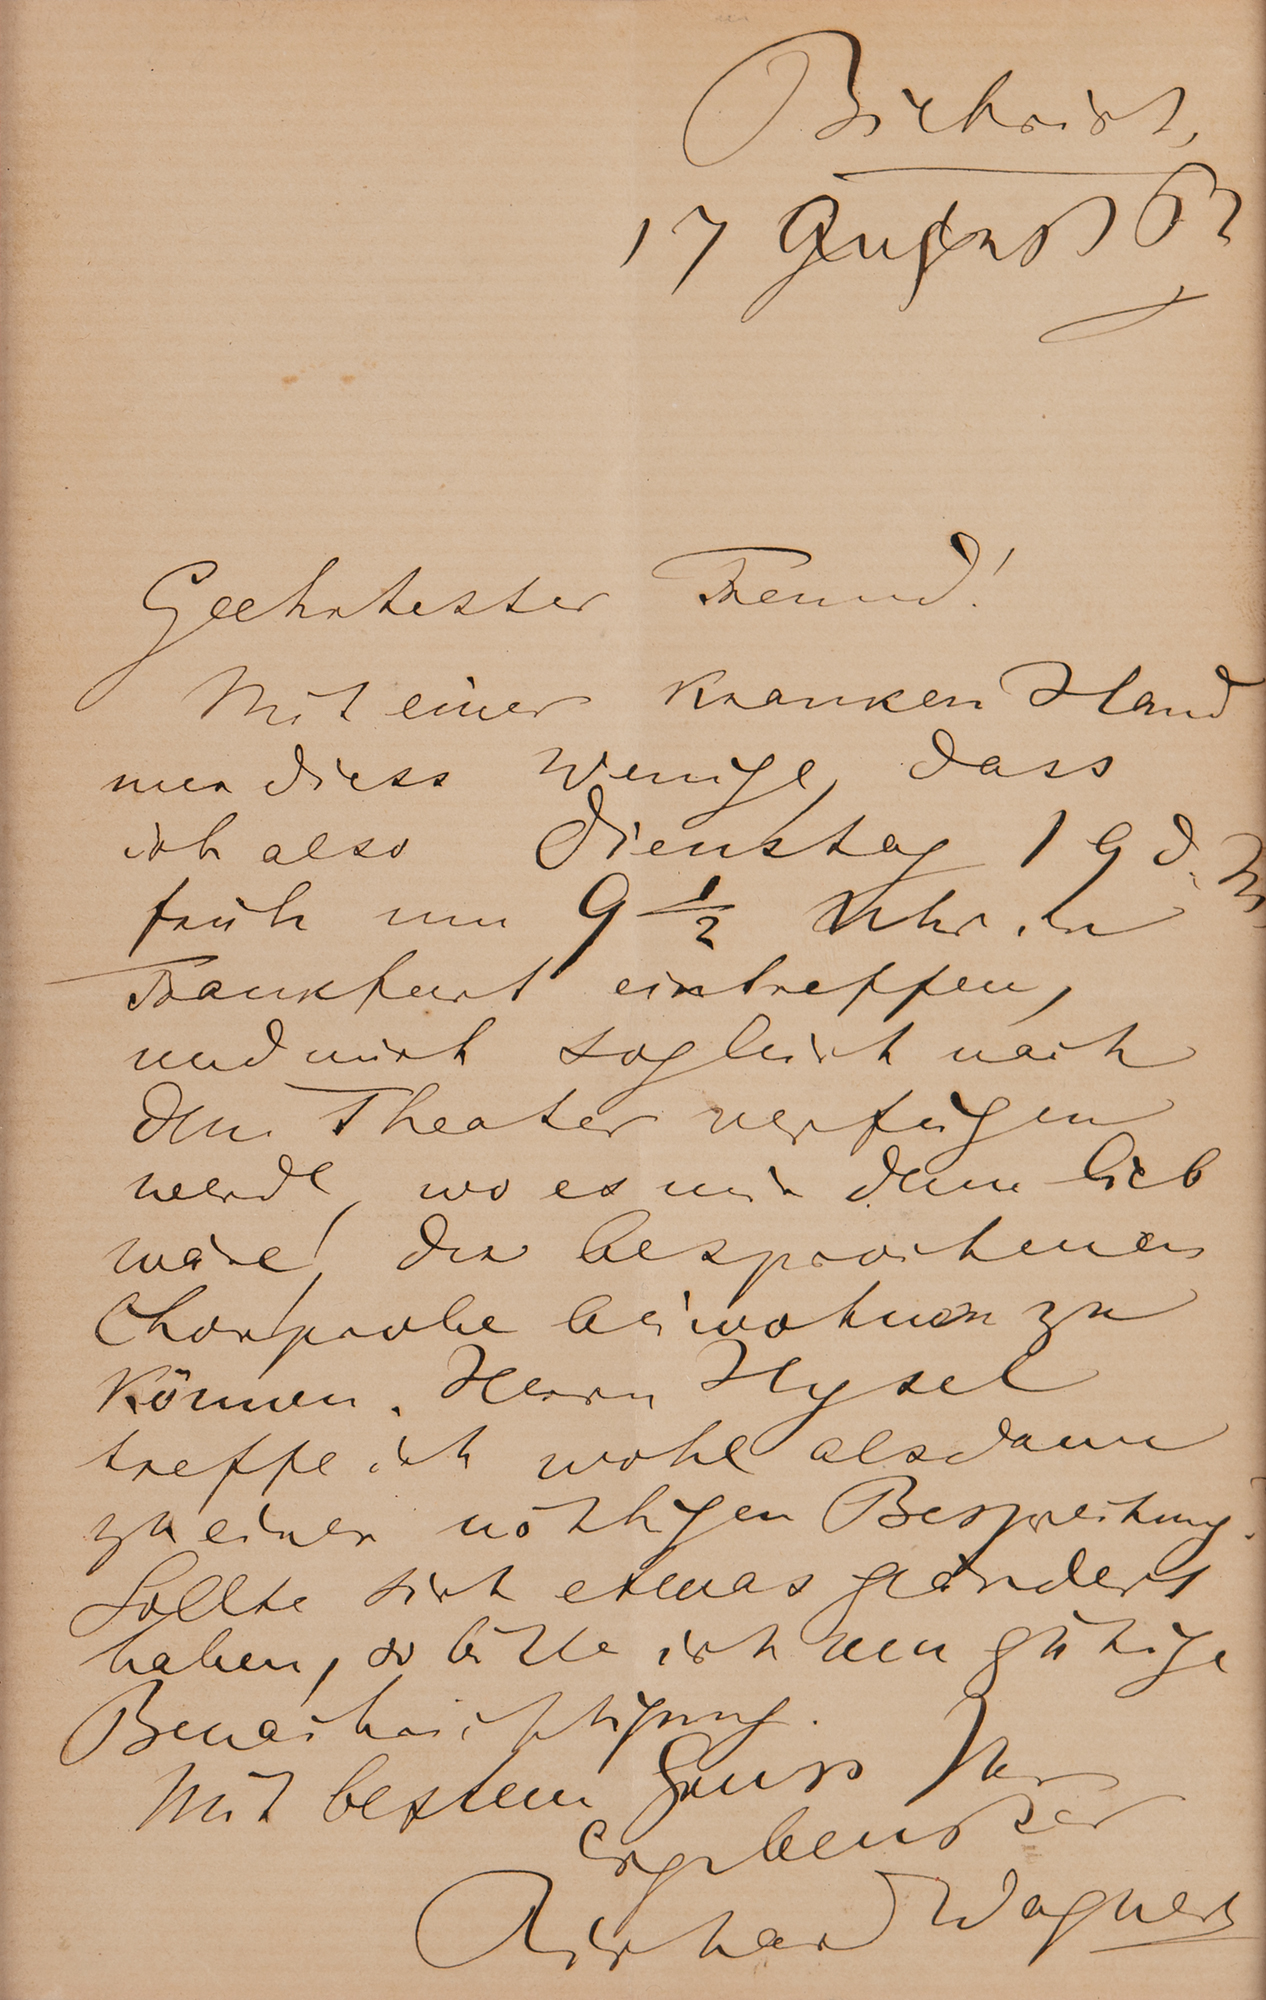 Biebrich,
17 August 62
Geehrtester Freund!
Mit einer kranken Hand
nur diess Wenige, dass
ich also Dienstag 19 d. M.
früh um 9 1/2 Uhr in
Frankfurt eintreffen,
und mich sogleich nach
dem Theater verfügen
werde, wo es mir dann lieb
wäre, der besprochenen
Chorprobe beiwohnen zu
können. Herrn Hysel
treffe ich wohl alsdann
zu einer nöthigen Besprechung.
Sollte sich etwas geändert
haben, so bitte ich um gütige
Benachrichtigung.
Mit bestem Gruss Ihr
ergebenster
Richard Wagner